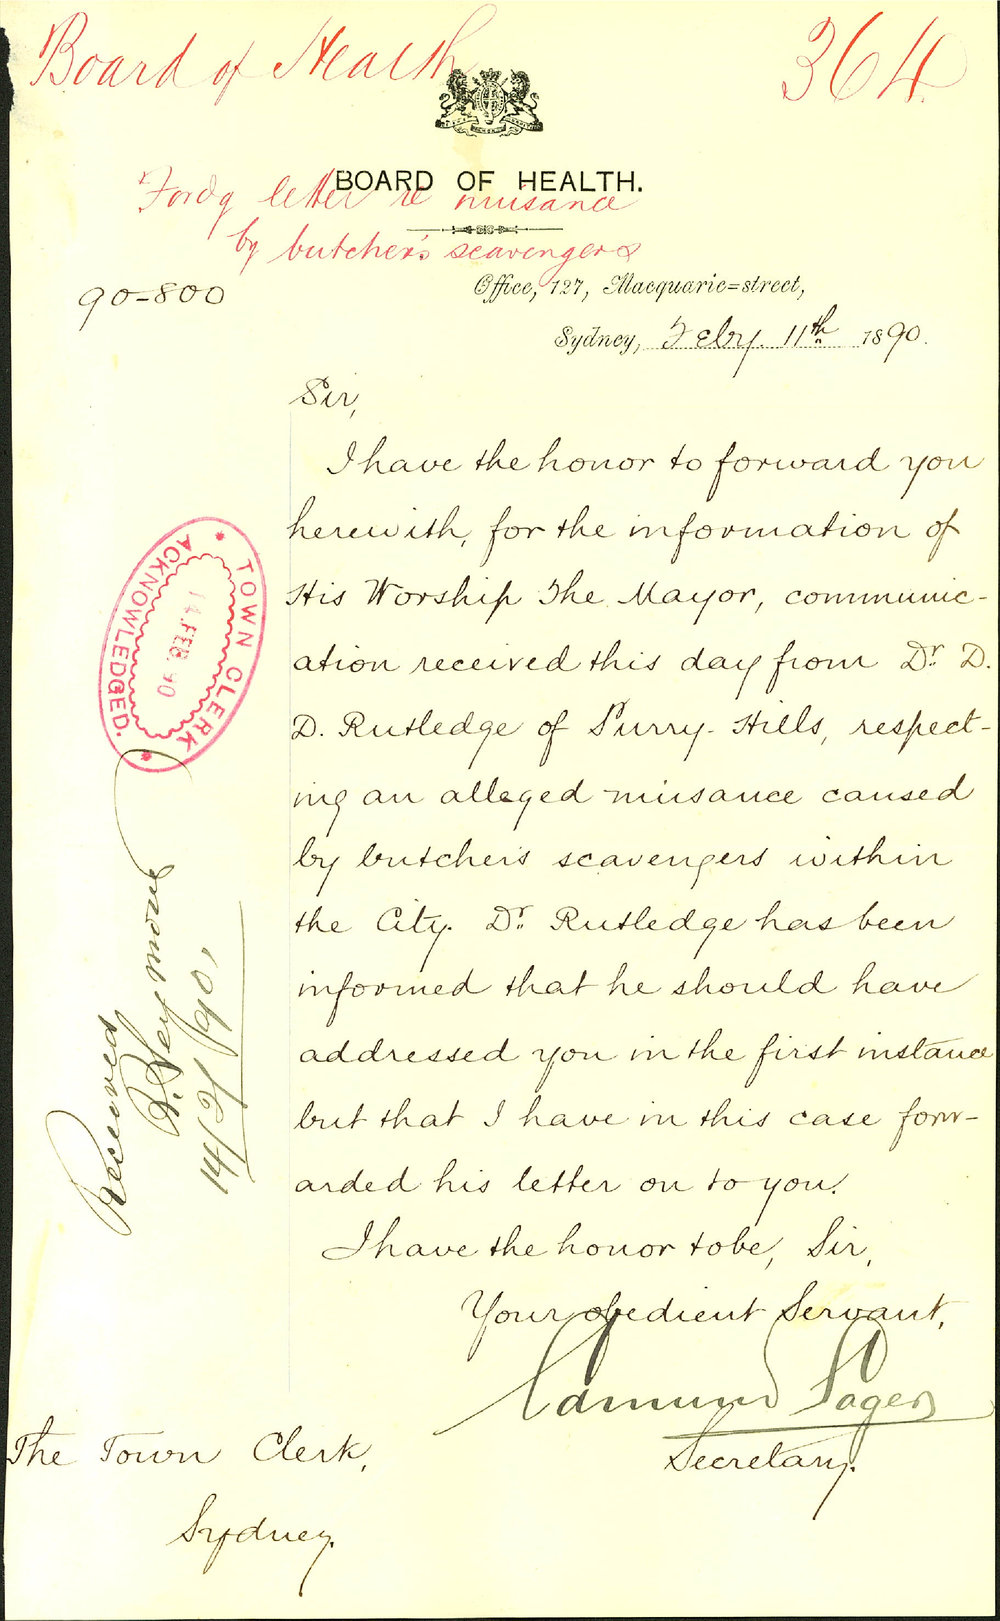 Board of Health
364
BOARD OF HEALTH.
Fordg letter re nuisance
by butcher's scavengers
90-800
Office, 127, Macquarie=street,
Sydney, Feby. 11th 1890.
Sir,
I have the honor to forward you
herewith, for the information of
His Worship The Mayor, communic-
ation received this day from Dr. D.
D. Rutledge of Surry-Hills, respect-
ing an alleged nuisance caused
by butchers scavengers within
the City. Dr. Rutledge has been
informed that he should have
addressed you in the first instance
but that I have in this case forw-
arded his letter on to you.
I have the honor to be, Sir,
Your obedient Servant,
Edmund Sager
Secretary.
The Town Clerk,
Sydney.
TOWN CLERK
14.FEB.90
ACKNOWLEDGED.
Received
14/2/90,